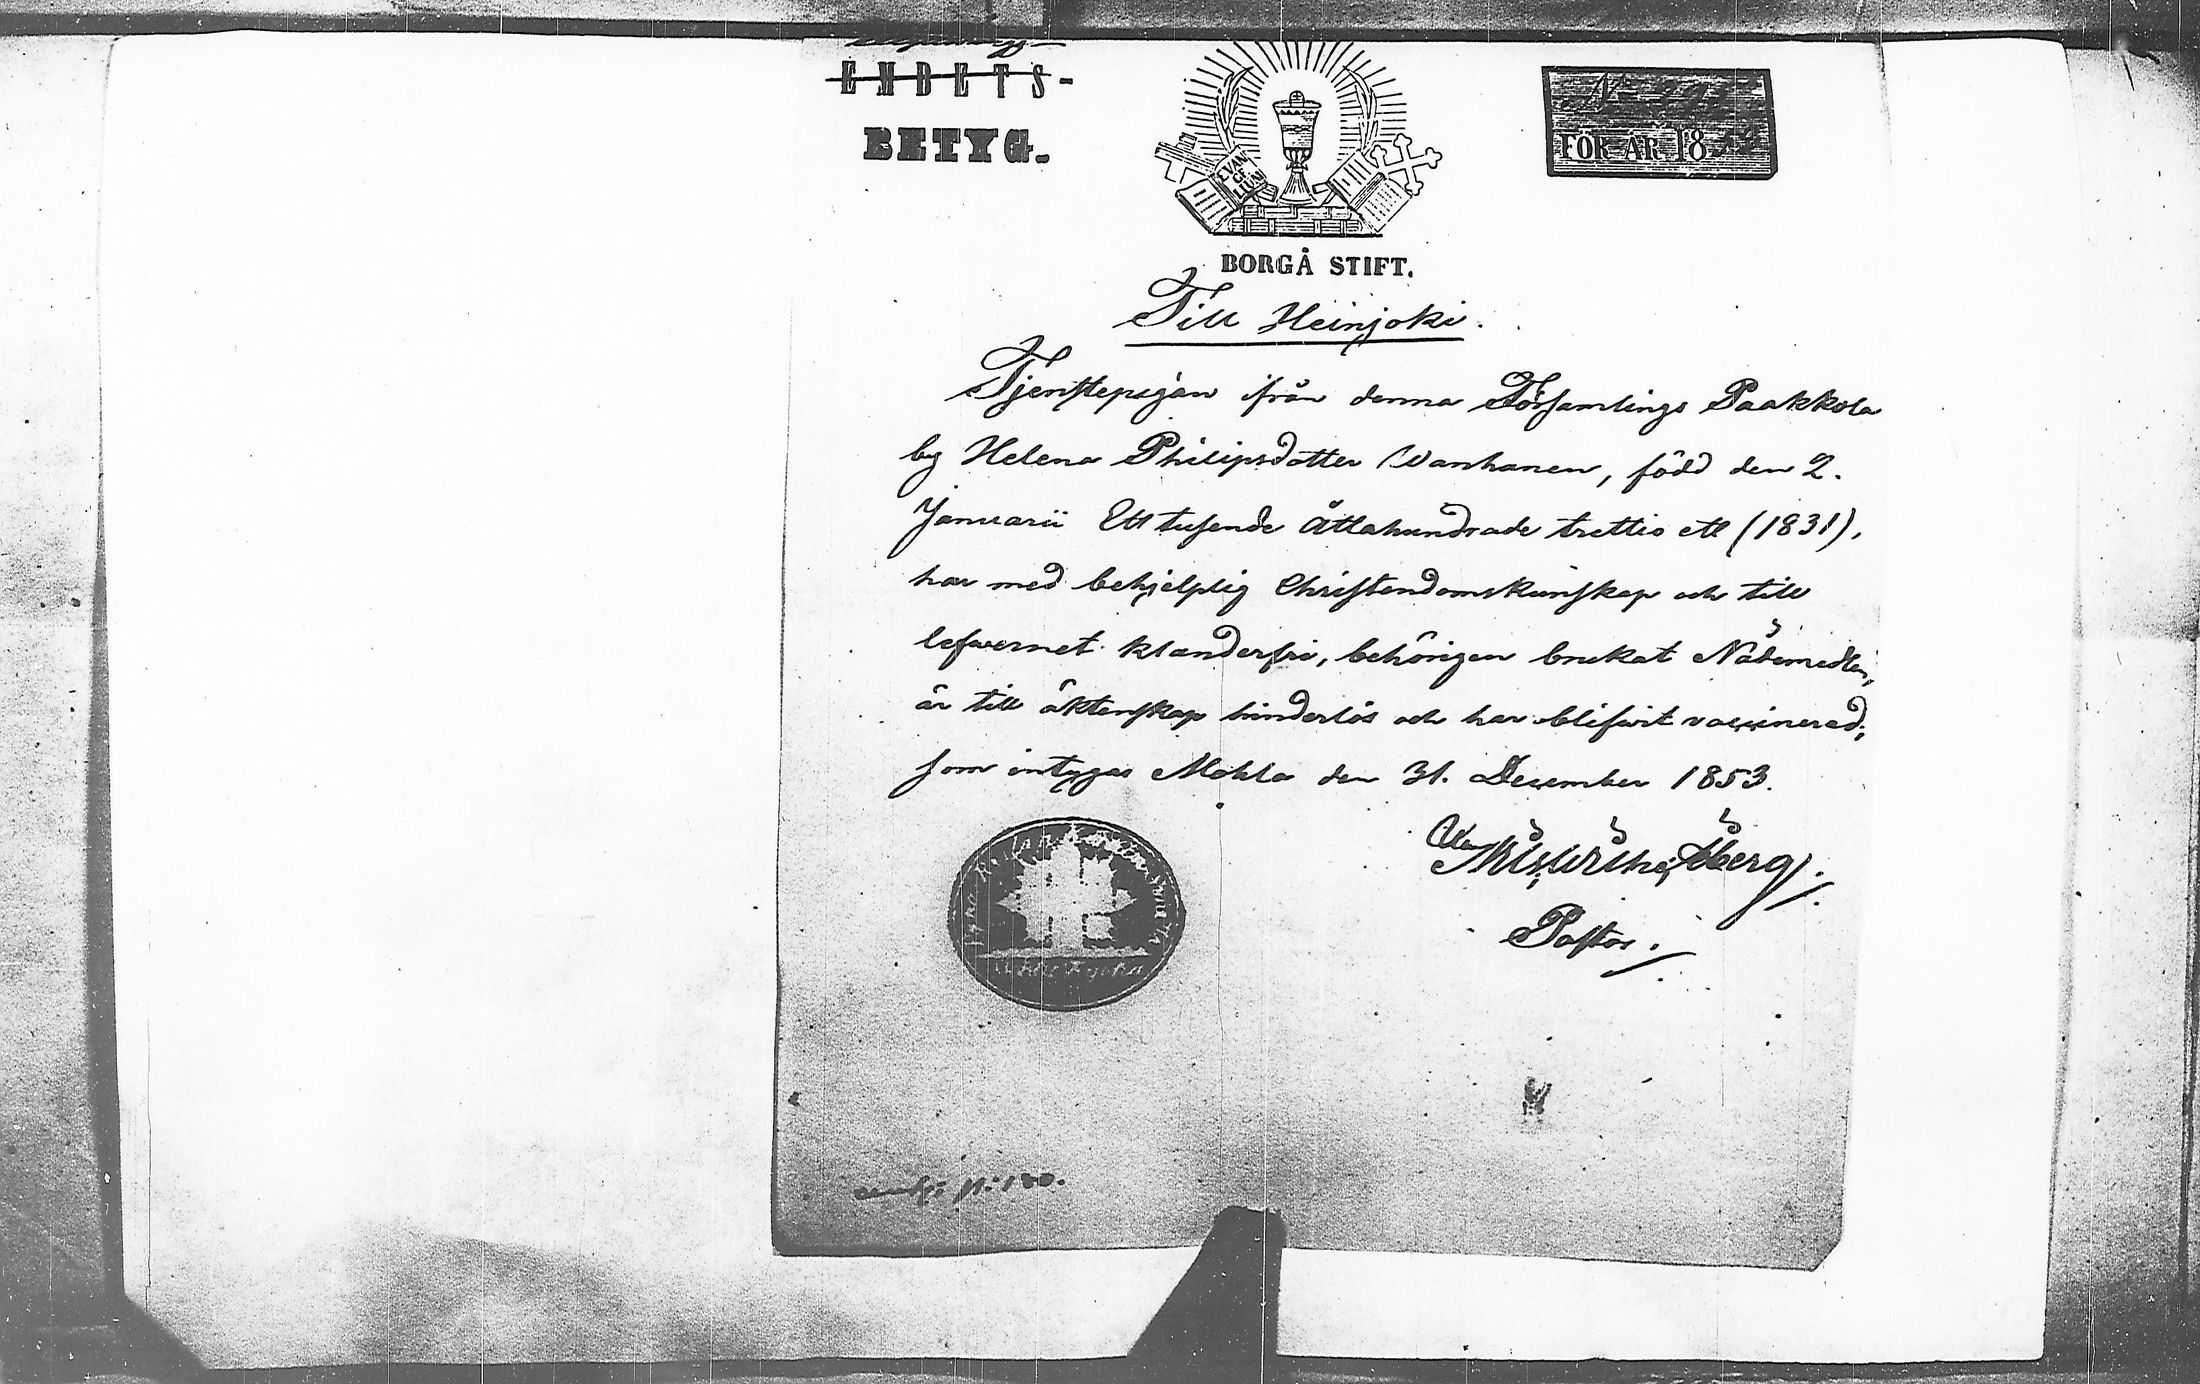 ENDETS-
BETYG.
EVAN
GE
LIUM
FÖR ÅR 18
BORGÅ STIFT.
Till Heinjoki.
Tjenstepigan ifrån denna Församlings Paakkola
by Helena Philipsdotter Wanhanen, född den 2.
Januarii Ett tusende Åttahundrade trettio ett (1831),
har med behjelplig Christendomskunskap och till
lefvernet klanderfri, behörigen brukat Nådemedlen,
är till äktenskap hinderlös och har blifvit vaccinerad;
som intygas Mohla den 31. December 1853.
Åberg.
Pastor.